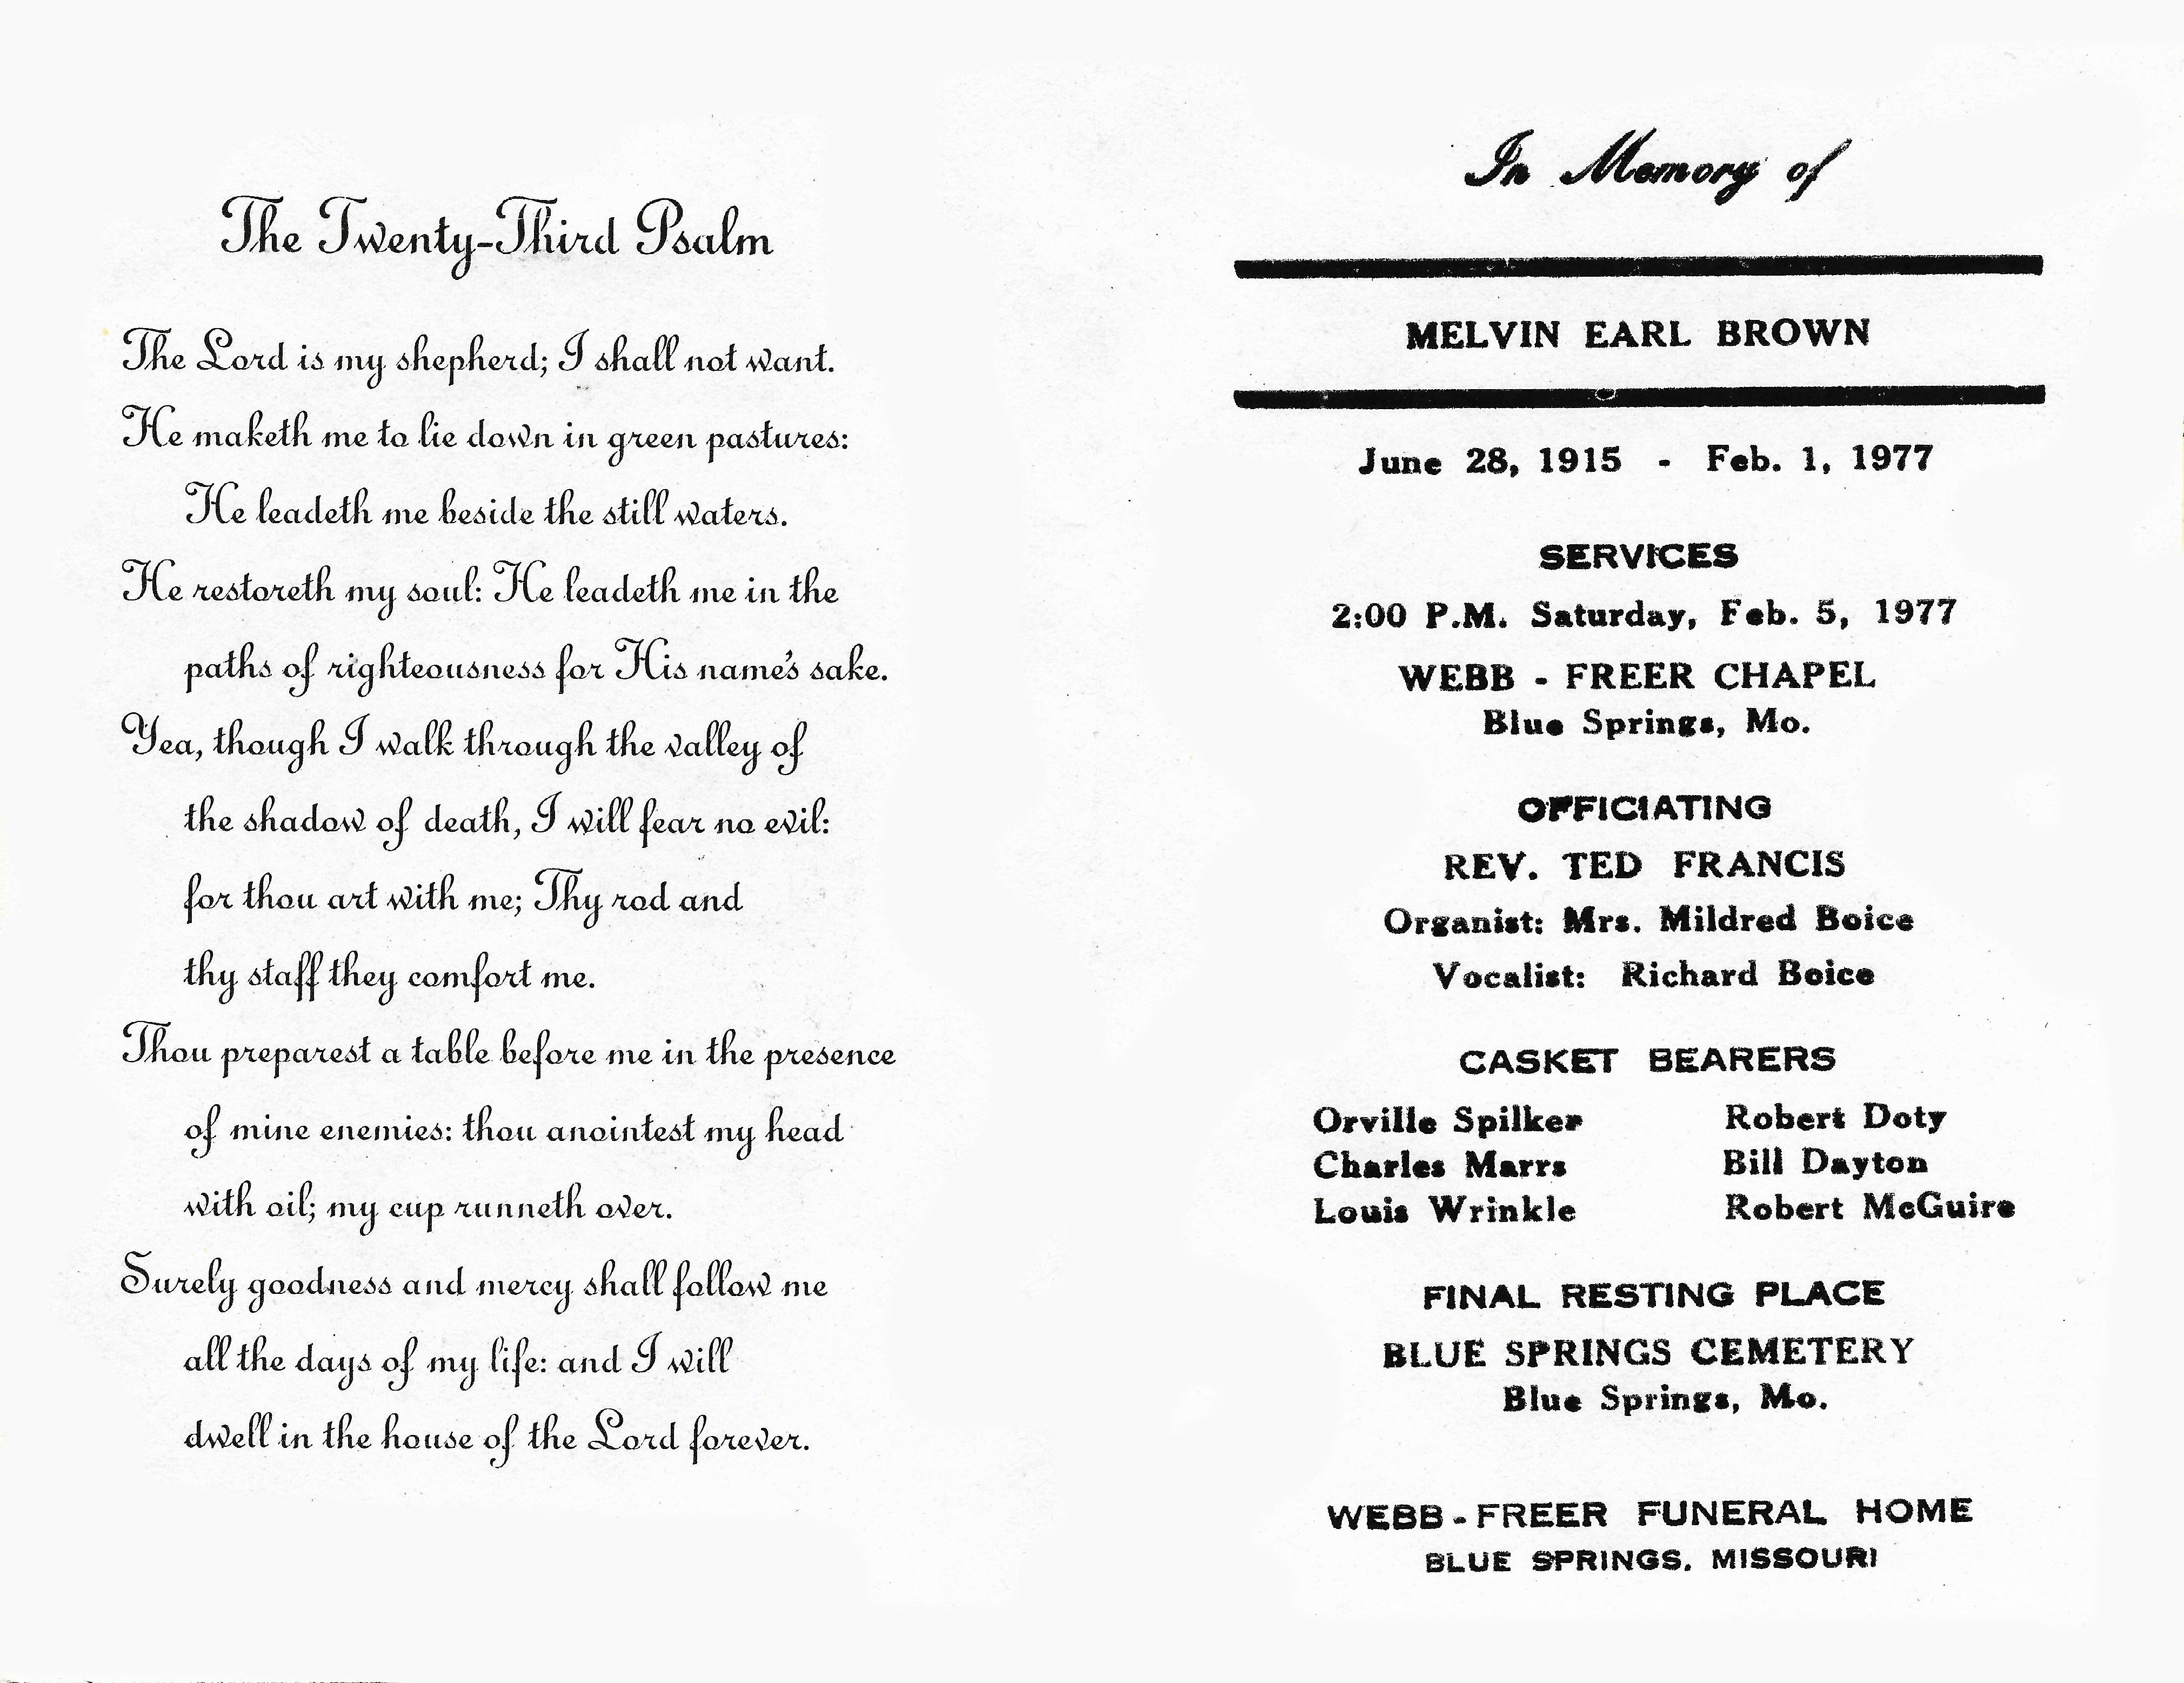 The Twenty-Third Psalm
The Lord is my shepherd; I shall not want.
He maketh me to lie down in green pastures:
He leadeth me beside the still waters.
He restoreth my soul: He leadeth me in the
paths of righteousness for His name's sake.
Yea, though I walk through the valley of
the shadow of death, I will fear no evil:
for thou art with me; Thy rod and
thy staff they comfort me.
Thou preparest a table before me in the presence
of mine enemies: thou anointest my head
with oil; my cup runneth over.
Surely goodness and mercy shall follow me
all the days of my life: and I will
dwell in the house of the Lord forever.
In Memory of
MELVIN EARL BROWN
June 28, 1915 - Feb. 1, 1977
SERVICES
2:00 P.M. Saturday, Feb. 5, 1977
WEBB - FREER CHAPEL
Blue Springs, Mo.
OFFICIATING
REV. TED FRANCIS
Organist: Mrs. Mildred Boice
Vocalist: Richard Boice
CASKET BEARERS
Orville Spilker Robert Doty
Charles Marrs Bill Dayton
Louis Wrinkle Robert McGuire
FINAL RESTING PLACE
BLUE SPRINGS CEMETERY
Blue Springs, Mo.
WEBB - FREER FUNERAL HOME
BLUE SPRINGS, MISSOURI